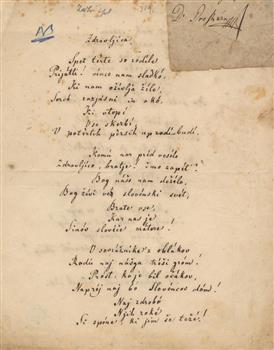 Zdravljica.
Spet terte so rodile
Prijatli, vince nam sladkó,
Ki nam oživlja žile,
Serce razjásni in okó,
Ki utopi
Vse skerbi,
V potertih persih up rodi.
Komú nar pred veselo
Zdravljico, bratje!
Bog našo nam deželo,
Bog živi ves slovenski svet,
Brate vse,
Kar nas je
Sinóv slovéče mátere!
V sovražnike z oblakov
Rodú naj naš'ga tréši gróm!
Prost, ko je bil očakov,
Naprej naj bo Slovencov dom!
Naj zdrobé
Njih roké
Si spone, ki jim še težé!